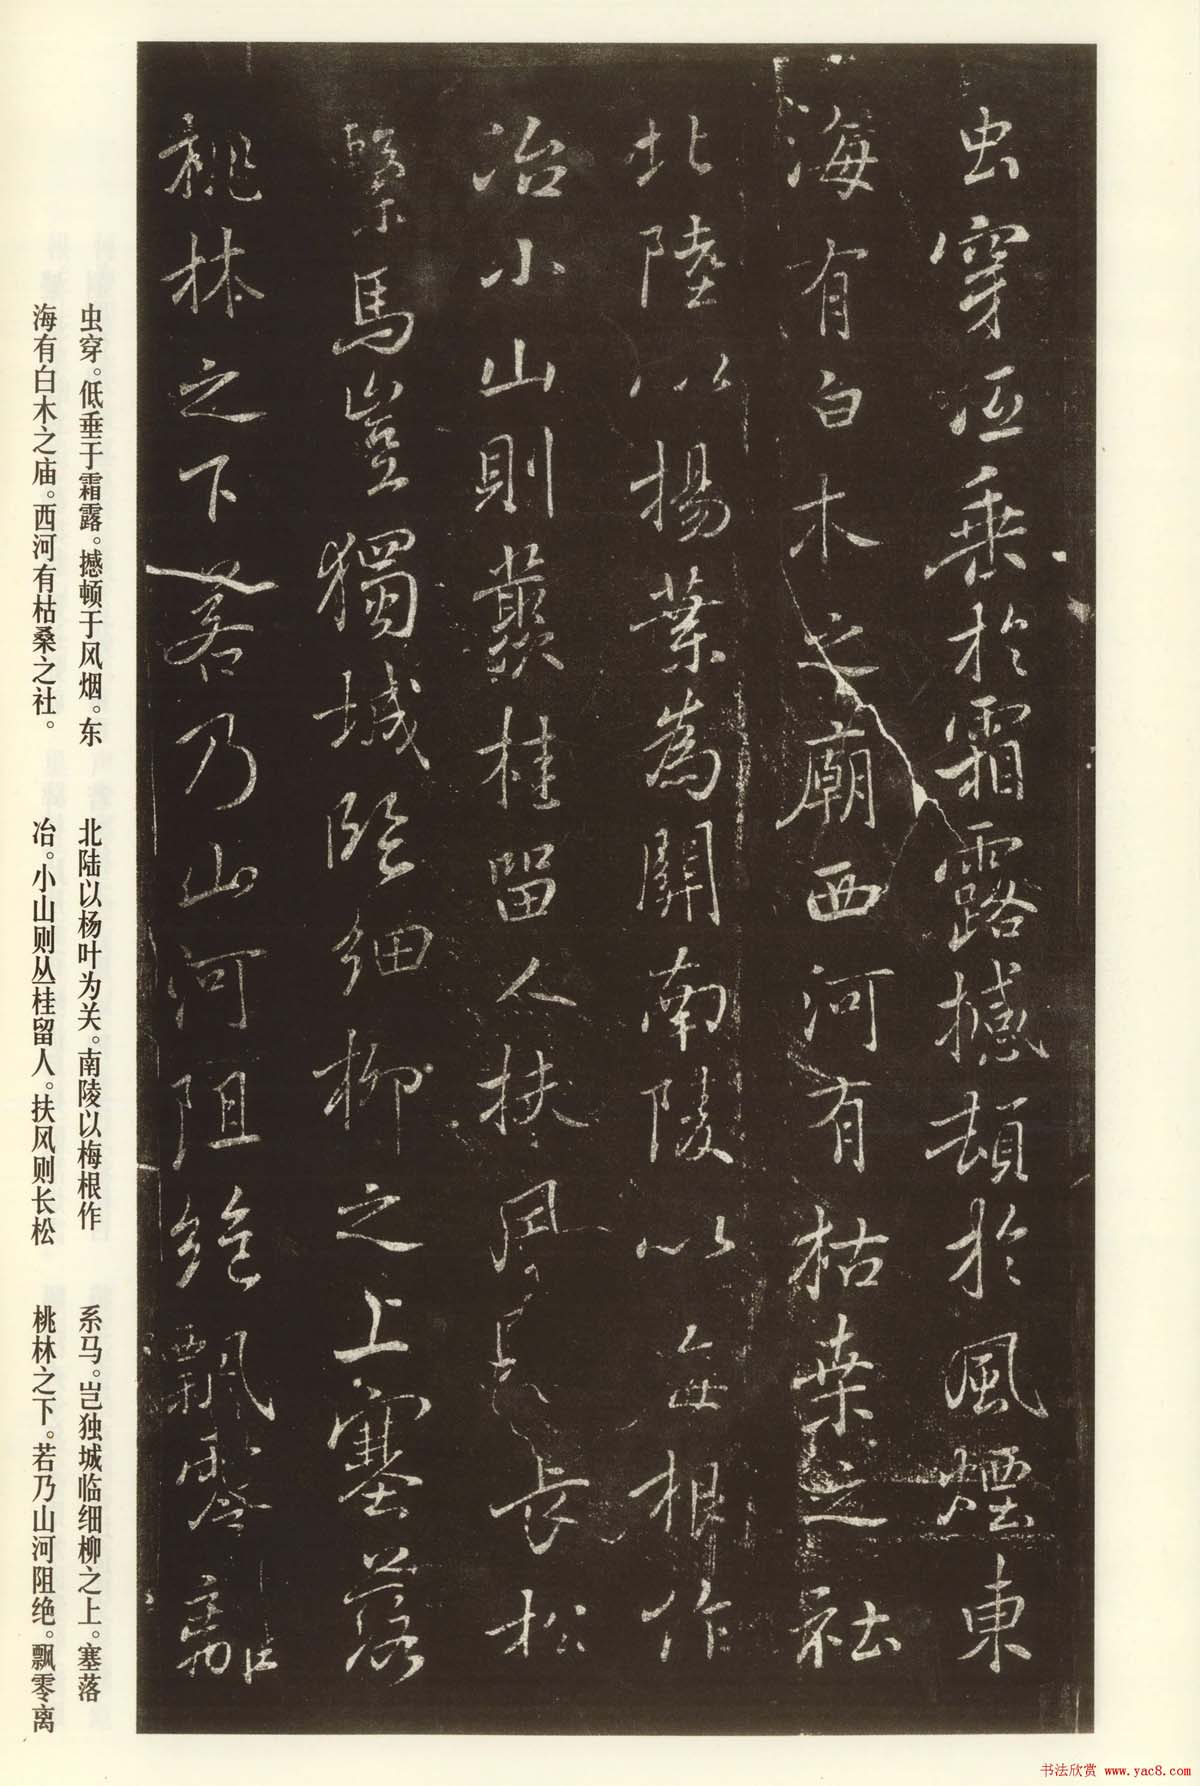 虫穿低垂於霜露撼頓於風煙東
海有白木之廟西河有枯桑之社
北陸以楊葉為關南陵以梅根作
冶小山則叢桂留人扶風則長松
繫馬豈獨城臨細柳之上塞落
桃林之下若乃山河阻絕飄零離
虫穿。低垂于霜露。撼顿于风烟。东
海有白木之庙。西河有枯桑之社。
北陆以杨叶为关。南陵以梅根作
冶。小山则丛桂留人。扶风则长松
系马。岂独城临细柳之上。塞落
桃林之下。若乃山河阻绝。飘零离
书法欣赏 www.yac8.com